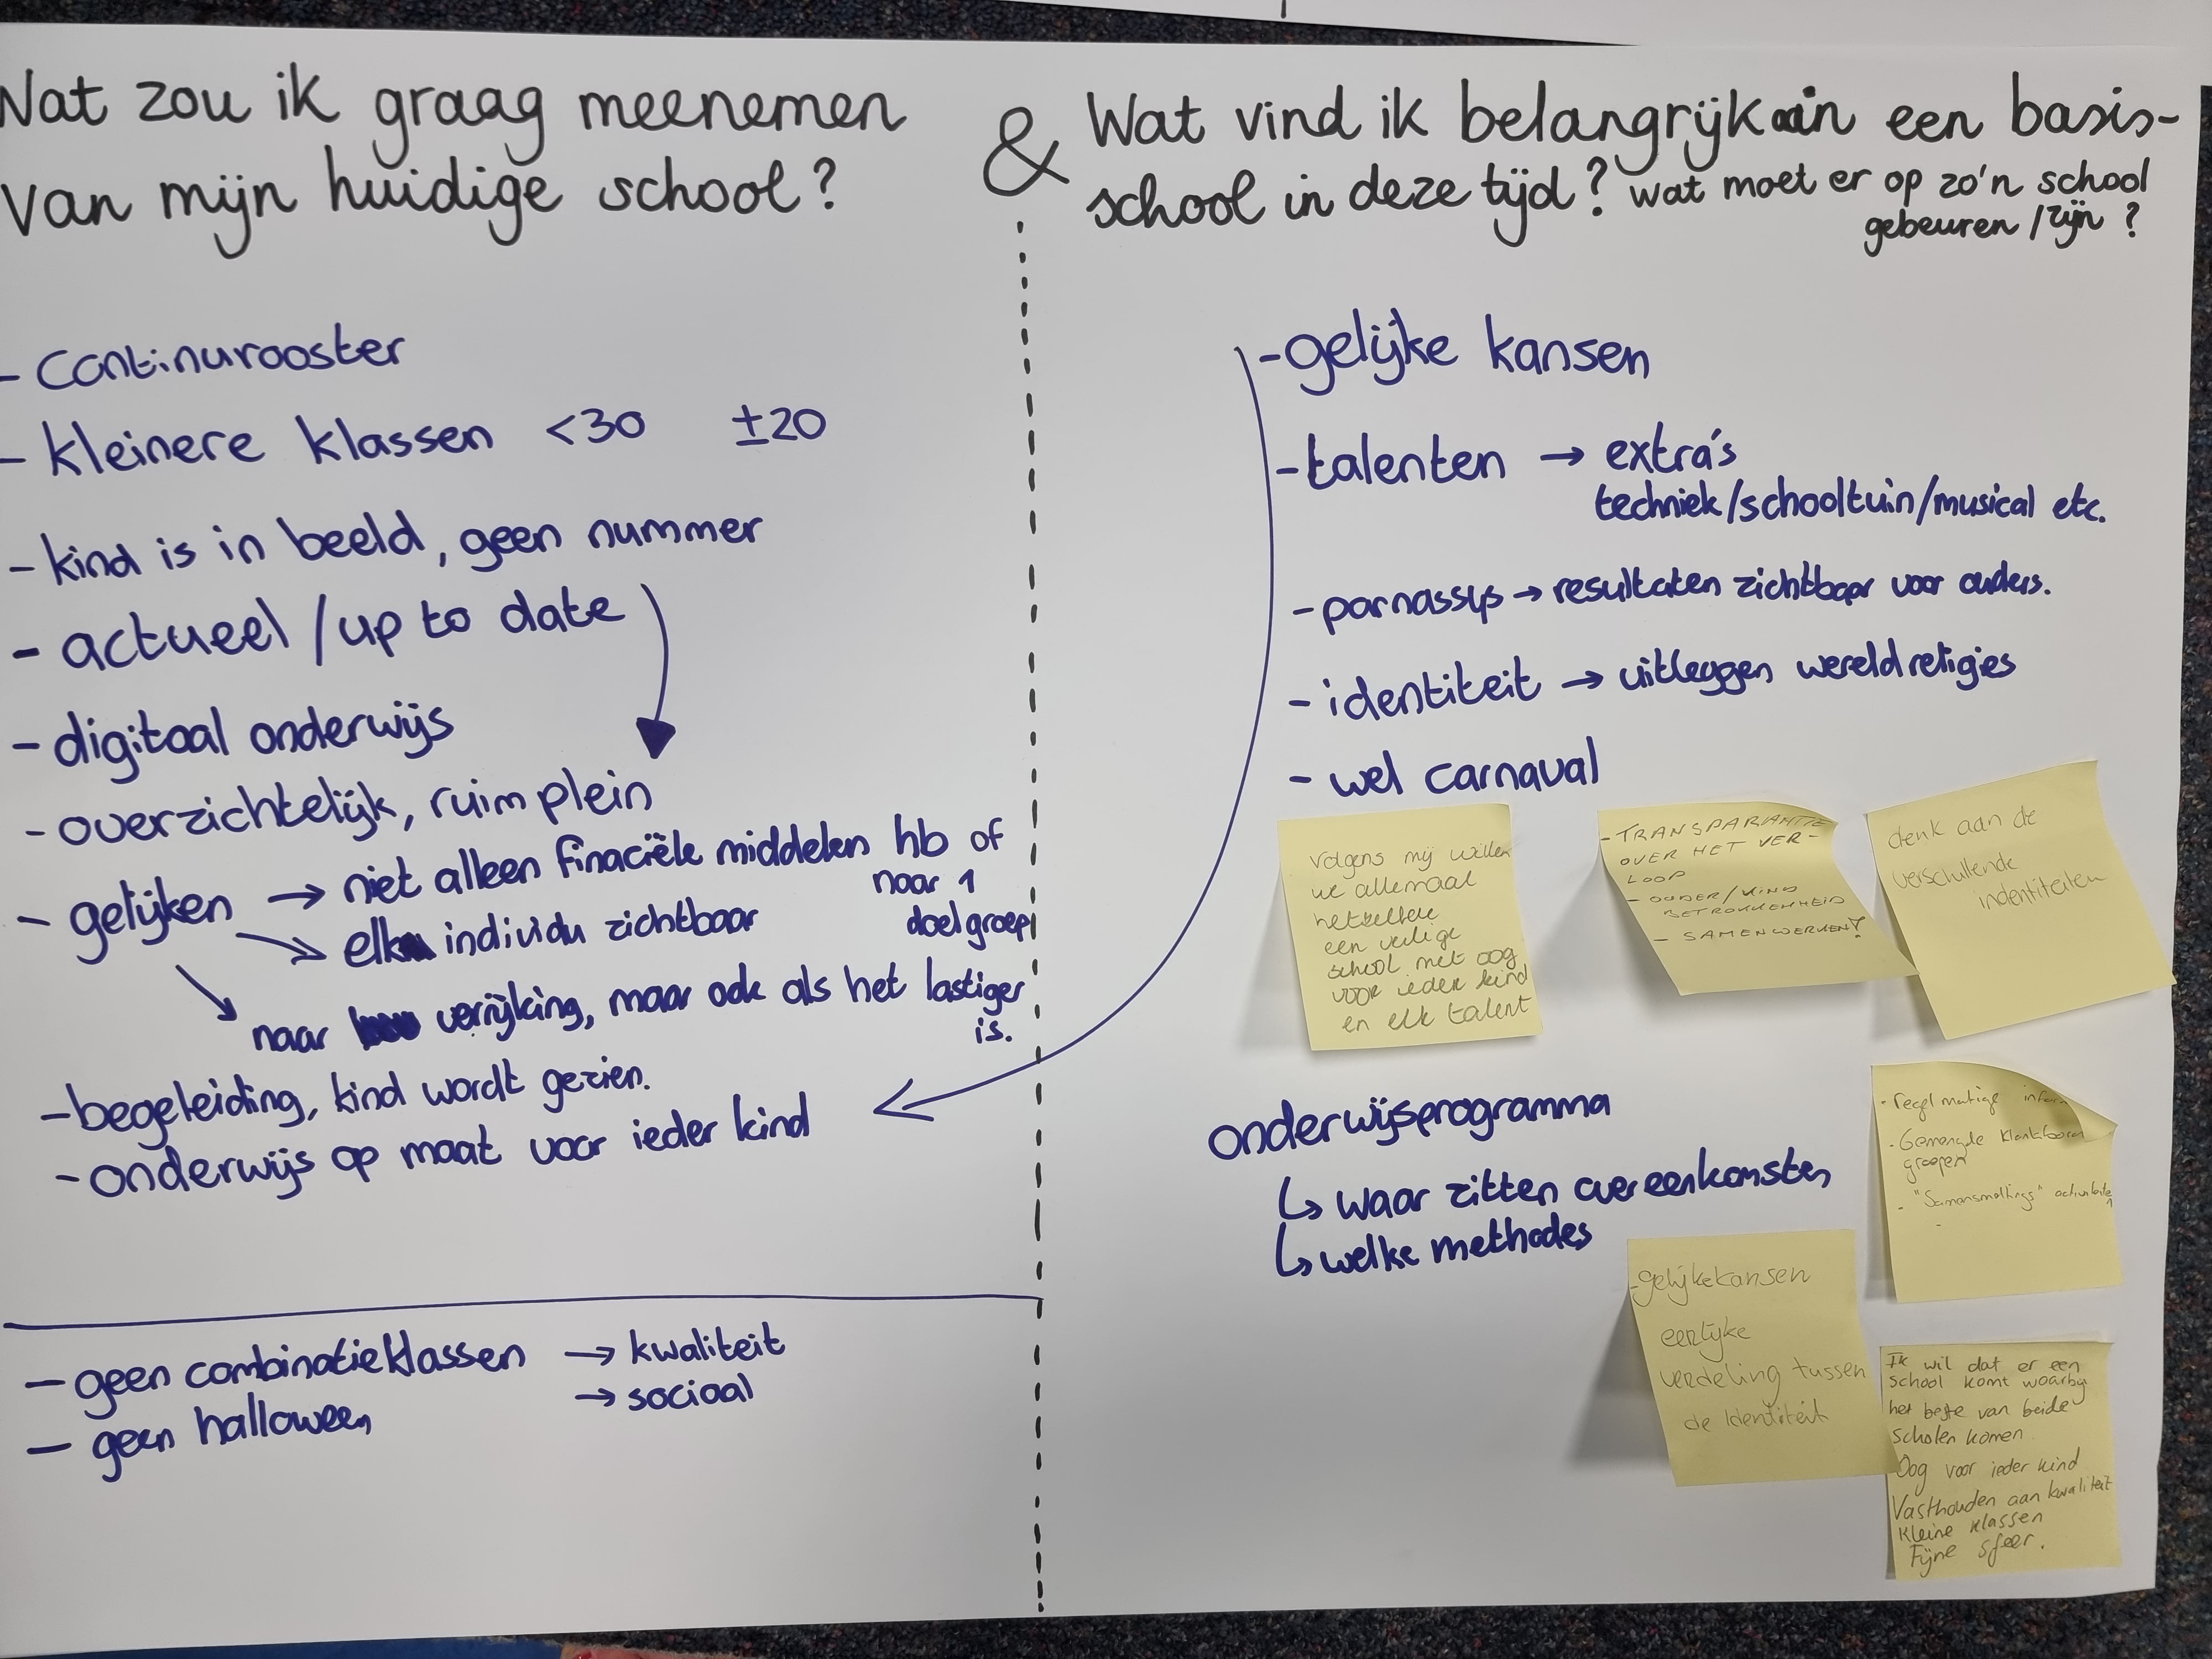 Wat zou ik graag meenemen
van mijn huidige school?
&
Wat vind ik belangrijk in een basis-
school in deze tijd? wat moet er op zo'n school
gebeuren / zijn?
- Continurooster
- kleinere klassen <30 ±20
- kind is in beeld, geen nummer
- actueel / up to date
- digitaal onderwijs
- overzichtelijk, ruim plein
- gelijken → niet alleen finaciële middelen hb of
naar 1
doelgroep
→ elk individu zichtbaar
naar verrijking, maar ook als het lastiger
is.
- begeleiding, kind wordt gezien.
- onderwijs op maat voor ieder kind
- geen combinatieklassen → kwaliteit
→ sociaal
- geen halloween
- gelijke kansen
- talenten → extra's
techniek/schooltuin/musical etc.
- parnassys → resultaten zichtbaar voor ouders.
- identiteit → uitleggen wereldreligies
- wel carnaval
Volgens mij willen
we allemaal
hetzelfde
een veilige
school met oog
voor ieder kind
en elk talent
- TRANSPARANTIE
OVER HET VER-
LOOP
- OUDER/KIND
BETROKKENHEID
- SAMENWERKEN!
denk aan de
verschillende
indentiteiten
onderwijsprogramma
↳ waar zitten overeenkomsten
↳ welke methodes
- regelmatige
- Gemengde klankbord
groepen
- "Samensmeltings"
-
- gelijkekansen
eerlijke
verdeling tussen
de Identiteit
Ik wil dat er een
school komt waarbij
het beste van beide
scholen komen
Oog voor ieder kind
Vasthouden aan kwaliteit
Kleine klassen
Fijne sfeer.